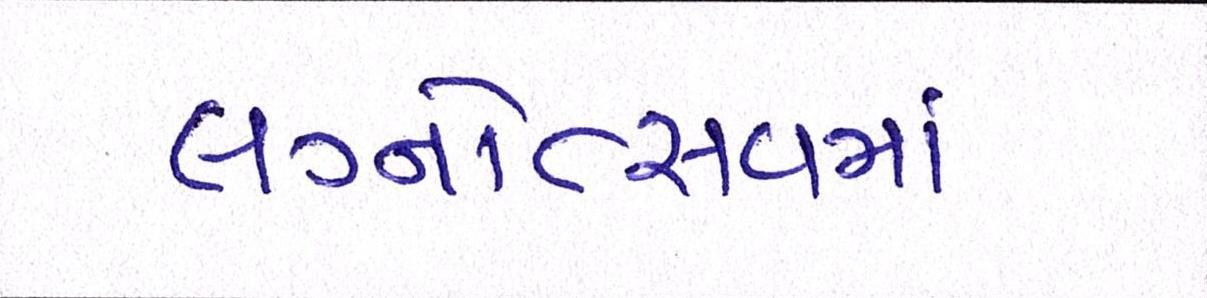 લગ્નોત્સવમાં